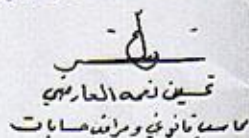 تحسين نعمه العارضي
محاسب قانوني ومراقب حسابات